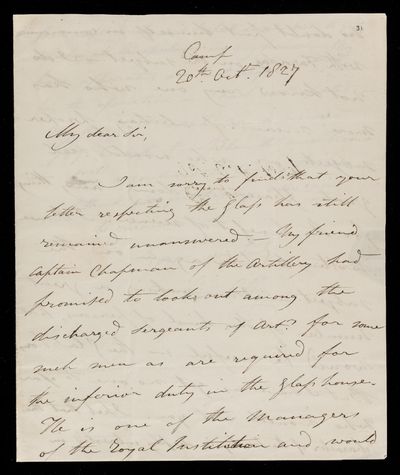 31
Camp
20th Octr. 1827
My dear Sir,
I am sorry to find that your
letter respecting the Glass has still
remained unanswered — My friend
Captain Chapman of the Artillery had
promised to look out among the
discharged Sergeants of Arty for some
such men as are required for
the inferior duty in the Glass house.
He is one of the Managers
of the Royal Institution and would